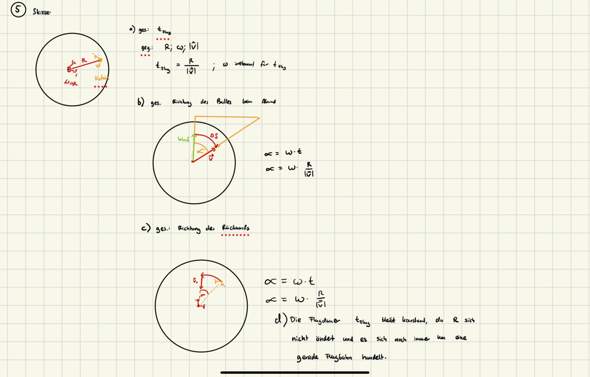 5 Skizze
R
a) ges: t_Flug
geg: R; ω; |v⃗|
t_Flug = R / |v⃗| ; ω irrelevant für t_Flug
b) ges: Richtung des Balles beim
α
v⃗
α = ω · t
α = ω · R / |v⃗|
c) ges.: Richtung des Rückwurfs
α = ω · t
α = ω · R / |v⃗|
d) Die Flugdauer t_Flug bleibt konstant, da R sich
nicht ändert und es sich noch immer um eine
gerade Flugbahn handelt.